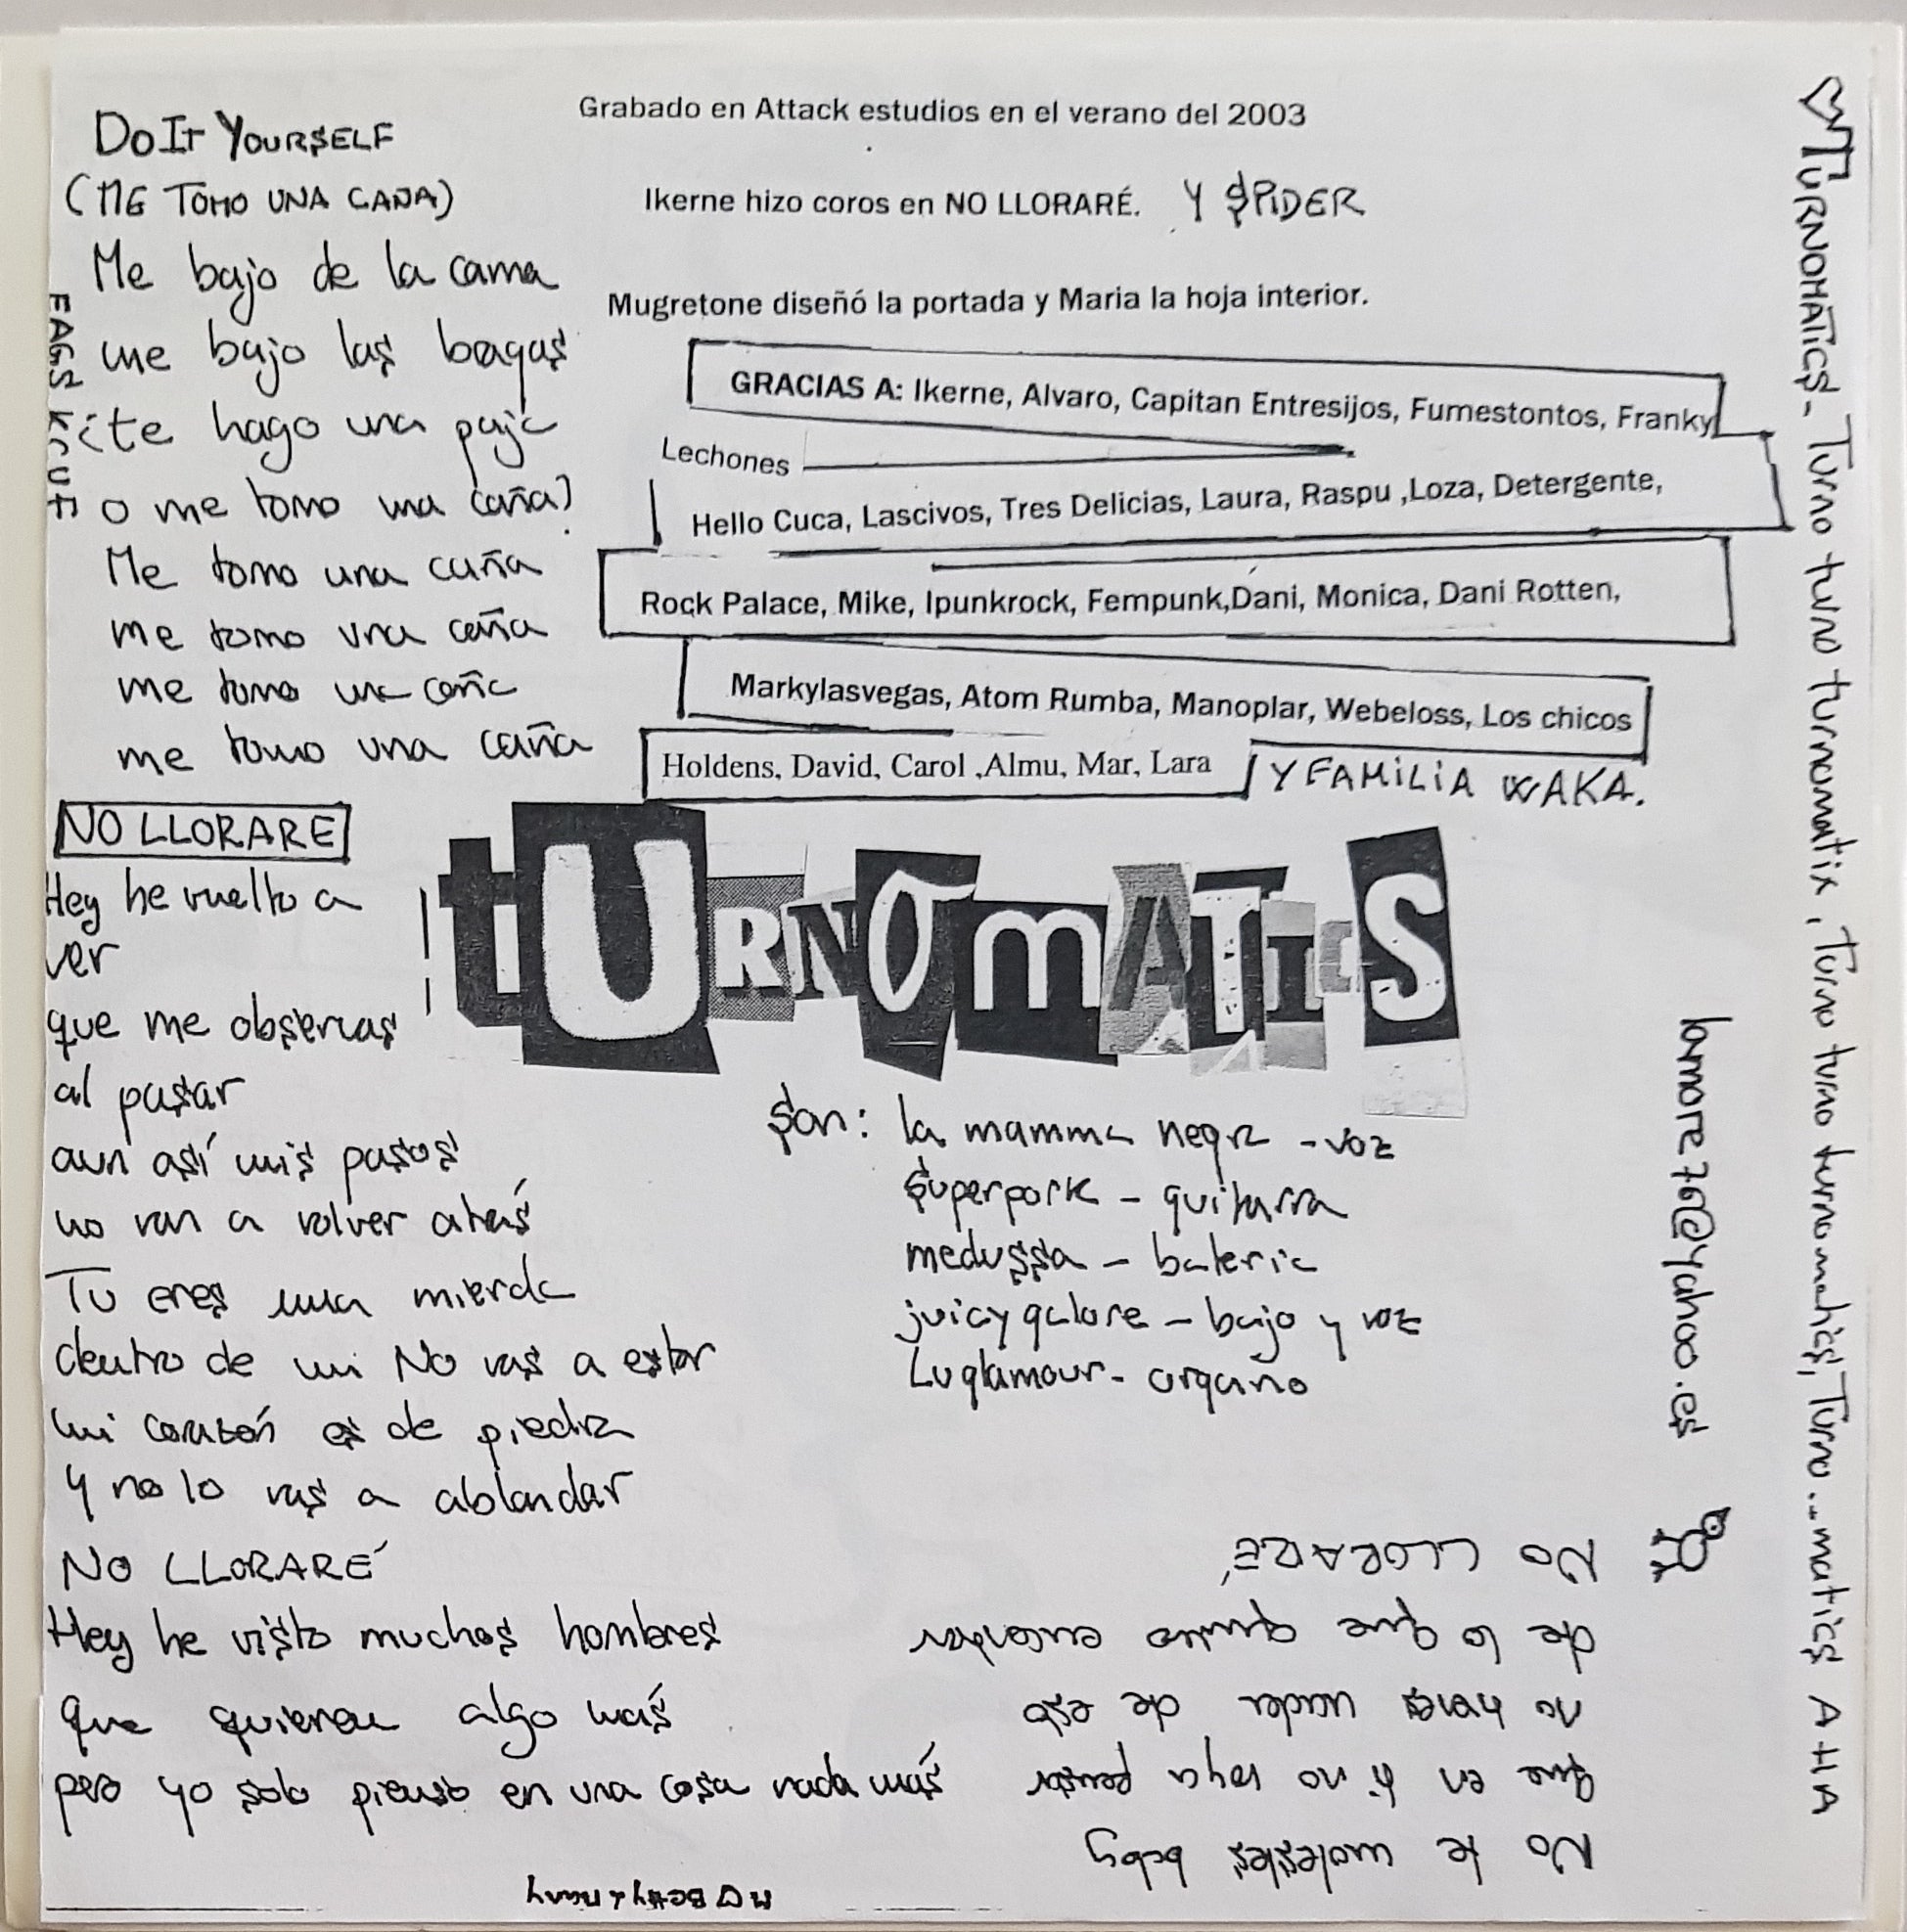 Do It YOURSELF
(ME TOMO UNA CAÑA)
Me bajo de la cama
me bajo las bagas
¿te hago una paja
o me tomo una caña?
Me tomo una caña
me tomo una caña
me tomo una caña
me tomo una caña
NO LLORARE
Hey he vuelto a
ver
que me observas
al pasar
aun así mis pasos
no van a volver atrás
Tu eres una mierda
dentro de mi No vas a estar
mi corazón es de piedra
Y no lo vas a ablandar
NO LLORARÉ
Hey he visto muchos hombres
que quieren algo más
pero yo solo pienso en una cosa nada más
No te molestes baby
que en ti no vaya pensar
no horas de eso
de lo que quieras
NO LLORARÉ
Grabado en Attack estudios en el verano del 2003
Ikerne hizo coros en NO LLORARÉ. Y SPIDER
Mugretone diseñó la portada y Maria la hoja interior.
GRACIAS A: Ikerne, Alvaro, Capitan Entresijos, Fumestontos, Franky
Lechones
Hello Cuca, Lascivos, Tres Delicias, Laura, Raspu ,Loza, Detergente,
Rock Palace, Mike, Ipunkrock, Fempunk,Dani, Monica, Dani Rotten,
Markylasvegas, Atom Rumba, Manoplar, Webeloss, Los chicos
Holdens, David, Carol ,Almu, Mar, Lara Y FAMILIA WAKA.
tURNOmATIcS
son: la mamma negra - voz
superpork - guitarra
medussa - bateria
juicygalore - bajo y voz
Luglamour - organo
lamore76@yahoo.es
TURNOMATICS - Turno turno turnomatix, Turno turno turnomatics, Turno...matics AHA